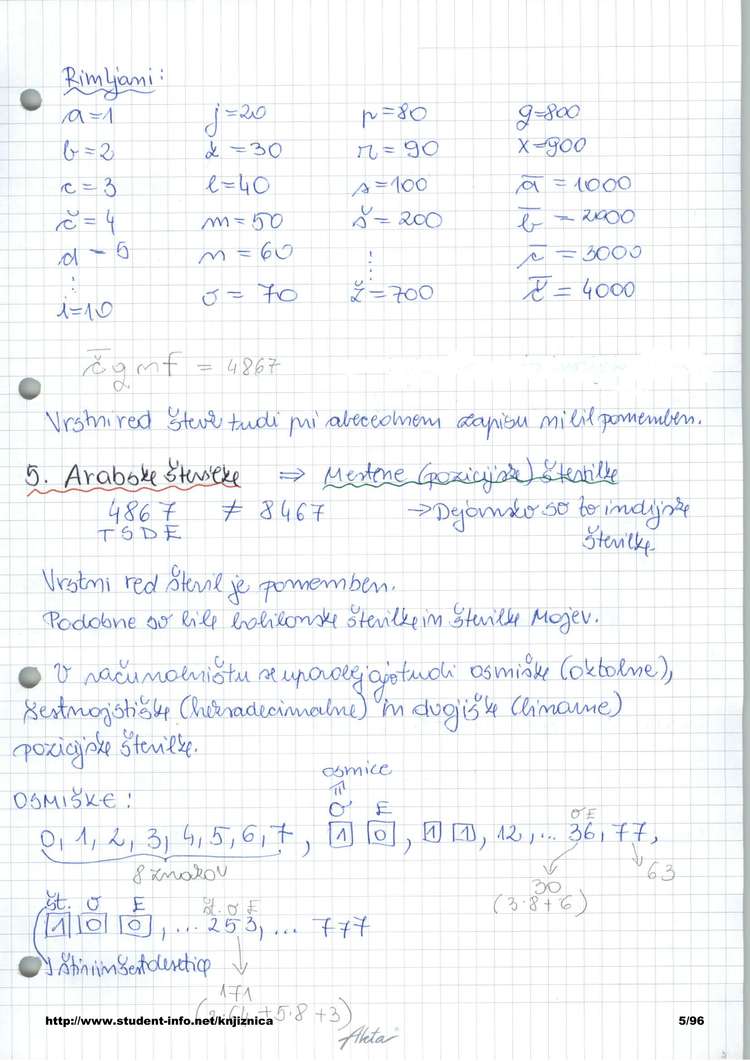 Rimljani:
a=1 j=20 p=80 g=800
b=2 k=30 r=90 x=900
c=3 l=40 s=100 a̅=1000
č=4 m=50 š=200 b̅=2000
d-5 n=60 ⋮ c̅=3000
⋮ o=70 ž=700 č̅=4000
i=10
č̅gnf = 4867
Vrstni red števk tudi pri abecednem zapisu ni bil pomemben.
5. Arabske številke ⇒ Mestne (pozicijske) številke
4867 ≠ 8467 → Dejansko so to indijske
TSDE številke
Vrstni red števil je pomemben.
Podobne so bile babilonske številke in številke Majev.
V računalništvu se uporabljajo tudi osmiške (oktalne),
šestnajstiške (hexadecimalne) in dvojiške (binarne)
pozicijske številke.
osmice
OSMIŠKE: O E O E
0, 1, 2, 3, 4, 5, 6, 7, 1 0, 1 1, 12, ... 36, 77,
8 znakov 30 63
(3·8+6)
Št. O E Š. O E
1 0 0, ... 253, ... 777
1 štiriinšestdesetica
171
(2·64+5·8+3)
http://www.student-info.net/knjiznica 5/96